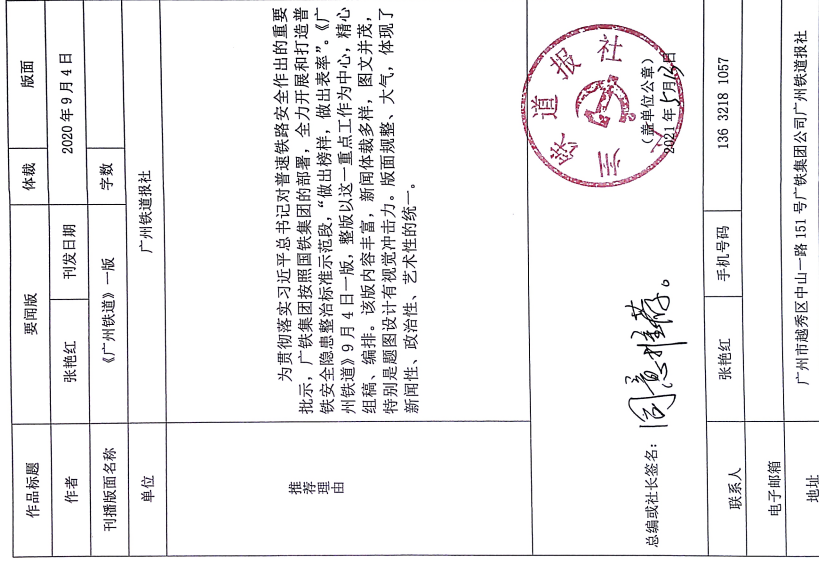 作品标题 要闻版 体裁 版面
作者 张艳红 刊发日期 2020年9月4日
刊播版面名称 《广州铁道》一版 字数
单位 广州铁道报社
推荐理由
为贯彻落实习近平总书记对普速铁路安全作出的重要
批示，广铁集团按照国铁集团的部署，全力开展和打造普
铁安全隐患整治标准示范段，“做出榜样，做出表率”。《广
州铁道》9月4日一版，整版以这一重点工作为中心，精心
组稿、编排。该版内容丰富，新闻体裁多样，图文并茂，
特别是题图设计有视觉冲击力。版面规整、大气，体现了
新闻性、政治性、艺术性的统一。
总编或社长签名：同意推荐。
广州铁道报社
（盖单位公章）
2021年5月13日
联系人 张艳红 手机号码 136 3218 1057
电子邮箱
地址 广州市越秀区中山一路151号广铁集团公司广州铁道报社